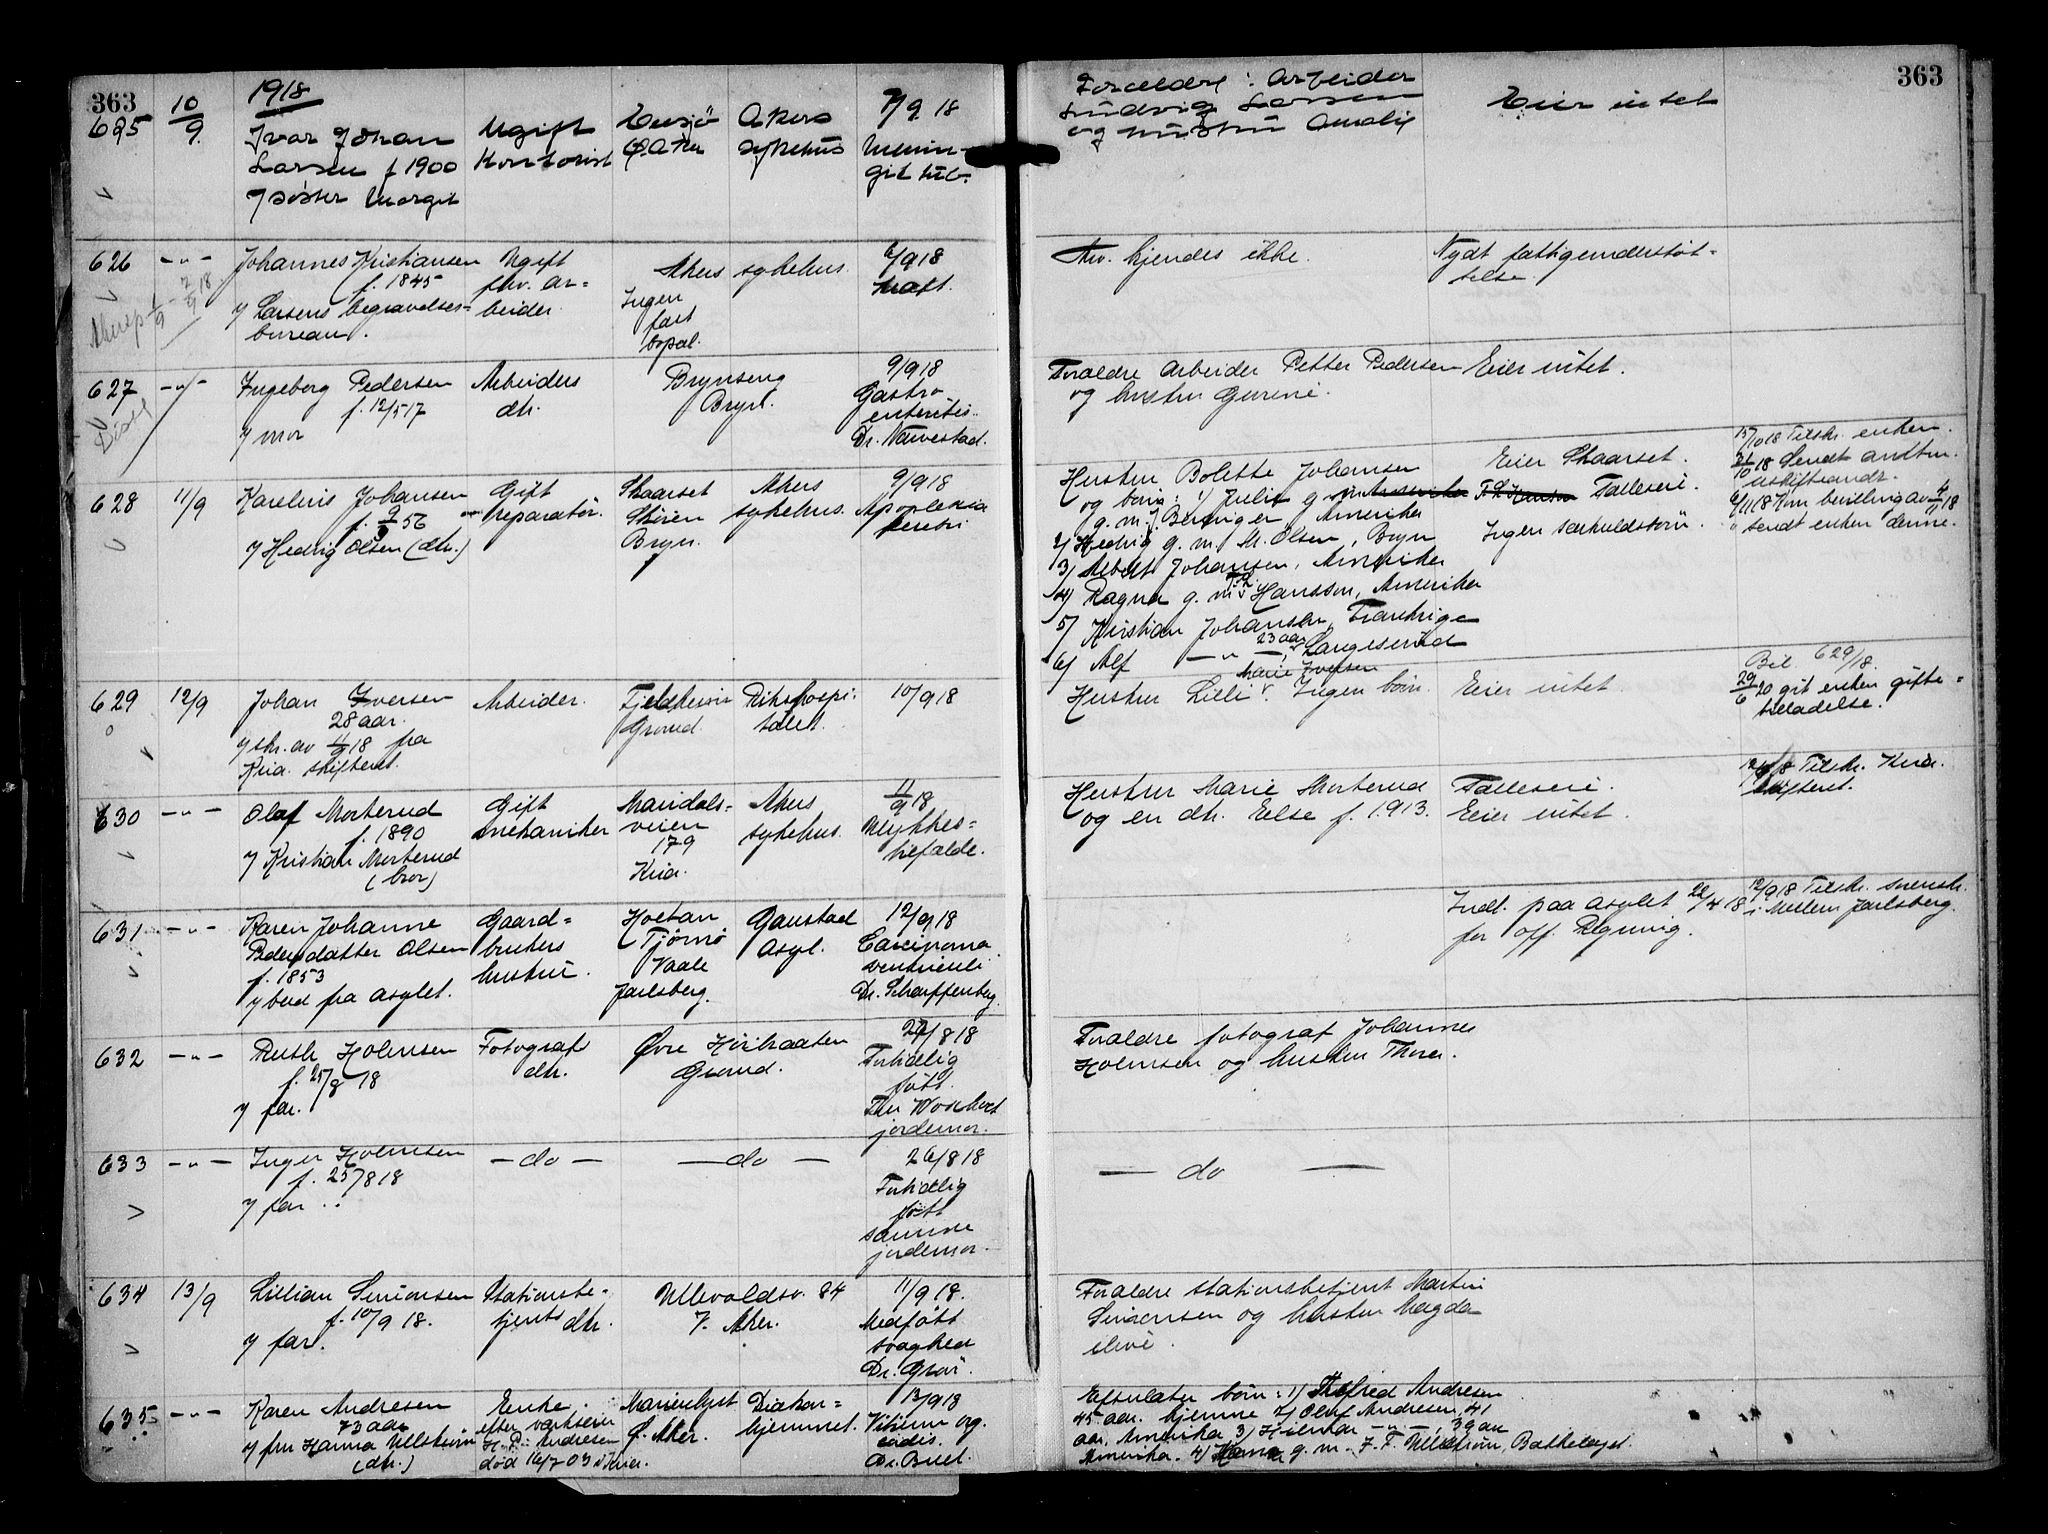 363
363
1918
625
10/9
Ivar Johan
Larsen f 1900
/ søster Margit
Ugift
Kontorist
Ø. Aker
Akers
sykehus
7/9 18
Menin-
git tub.
Forældre: Arbeider
Ludvig Larsen
og hustru Amalie
Eier intet
626
-"-
Johannes Kristiansen
f. 1845
/ Larsens begravelses=
bureau.
Ugift
fhv. ar=
beider.
Akers sykehus.
Ingen
fast
bopæl.
6/9 18
Arv. kjendes ikke.
Nydt fattigunderstøt-
telse.
627
-"-
Ingeborg Pedersen
f. 12/5 17
/ mor
Arbeiders
dtr.
Brynseng
Bryn.
9/9 18
Gastro
enteritis.
Dr. Nævestad.
Forældre Arbeider Petter Pedersen
og hustru Gurine.
Eier intet.
628
11/9
Karelius Johansen
f. 9/3 56
/ Hedvig Olsen (dtr.)
Gift
reparatør.
Skaarset
Skøien
Bryn.
Akers
sykehus.
9/9 18
Apoplexia
cerebri
Hustru Bolette Johansen
og barn: 1) Julie g
g. m. J. Berringer, Amerika
2) Hedvig g. m. M. Olsen, Bryn
3) Albert Johansen, Amerika
4) Ragna g. m. F. L. Hansson, Amerika
5) Kristian Johansen, Frankrige
6) Alf -"-, 23 aar, Langeserud
Eier Skaarset.
Fælleseie.
Ingen særkuldsbørn.
15/10 18 Tilskr. enken.
21/10 18 Sendt andm.
uskifteandr.
6/11 18 Kom bevilling av 4/11 18
" sendt enken denne.
629
12/9
Johan Iversen
28 aar.
/ skr. av 11/9 18 fra
Kria. skifteret.
Arbeider.
Grorud.
Rikshospi-
talet.
10/9 18
Hustru Lilli Marie Iversen. Ingen børn.
Eier intet.
Bil. 629/18.
29/6 20 git enken gifte=
tilladelse.
630
-"-
Olaf Morterud
f. 1890
/ Kristian Morterud
(bror)
Gift
mekaniker
Maridals-
veien
179
Kria.
Akers
sykehus.
11/9 18
Ulykkes=
tilfælde.
Hustru Marie Morterud
og en dtr. Else f. 1913.
Fælleseie.
Eier intet.
12/9 18 Tilskr. Kria.
skifteret.
631
-"-
Karen Johanne
Pedersdatter Olsen
f. 1853
/ bud fra asylet.
Gaard=
brukers
hustru.
Tjømø
Vaale
Jarlsberg.
Gaustad
Asyl.
12/9 18
Carcinoma
ventriculi
Dr. Scharffenberg.
Indl. paa asylet 22/4 18
for off. Regning.
12/9 18 Tilskr. sorensk.
i Mellem Jarlsberg.
632
-"-
Ruth Holmsen
f. 25/8 18
/ far.
Fotografs
dtr.
Øvre Høibraaten
Grorud.
27/8 18
Fortidlig
født.
jordemor.
Forældre fotograf Johannes
Holmsen og hustru Thora.
633
-"-
Inger Holmsen
f. 25/8 18
/ far..
- do -
- do -
26/8 18
Fortidlig
født
samme
jordemor.
- do -
634
13/9
Lillian Simonsen
f. 10/9 18.
/ far.
Stationsbe-
tjents dtr.
Ullevoldsv. 84
V. Aker.
11/9 18.
Medføtt
svaghed
Dr. Grøn.
Forældre stationsbetjent Martin
Simonsen og hustru Magda
635
-"-
Karen Andresen
73 aar
/ fru Hanna Ullstrøm
(dtr.)
Enke
efter verkseier
H. P. Andresen
død 16/7 03 i Kria.
Marienlyst
Ø. Aker.
Diakon=
hjemmet.
13/9 18
Vitium org.
cordis.
Dr. Bull.
Efterlater børn: 1) Thofred Andresen
45 aar. hjemme 2) Oluf Andresen, 41
aar, Amerika 3) Hilmar -"-, 39 aar
Amerika. 4) Hanna g. m. F. F. Ullstrøm, Bækkelaget.